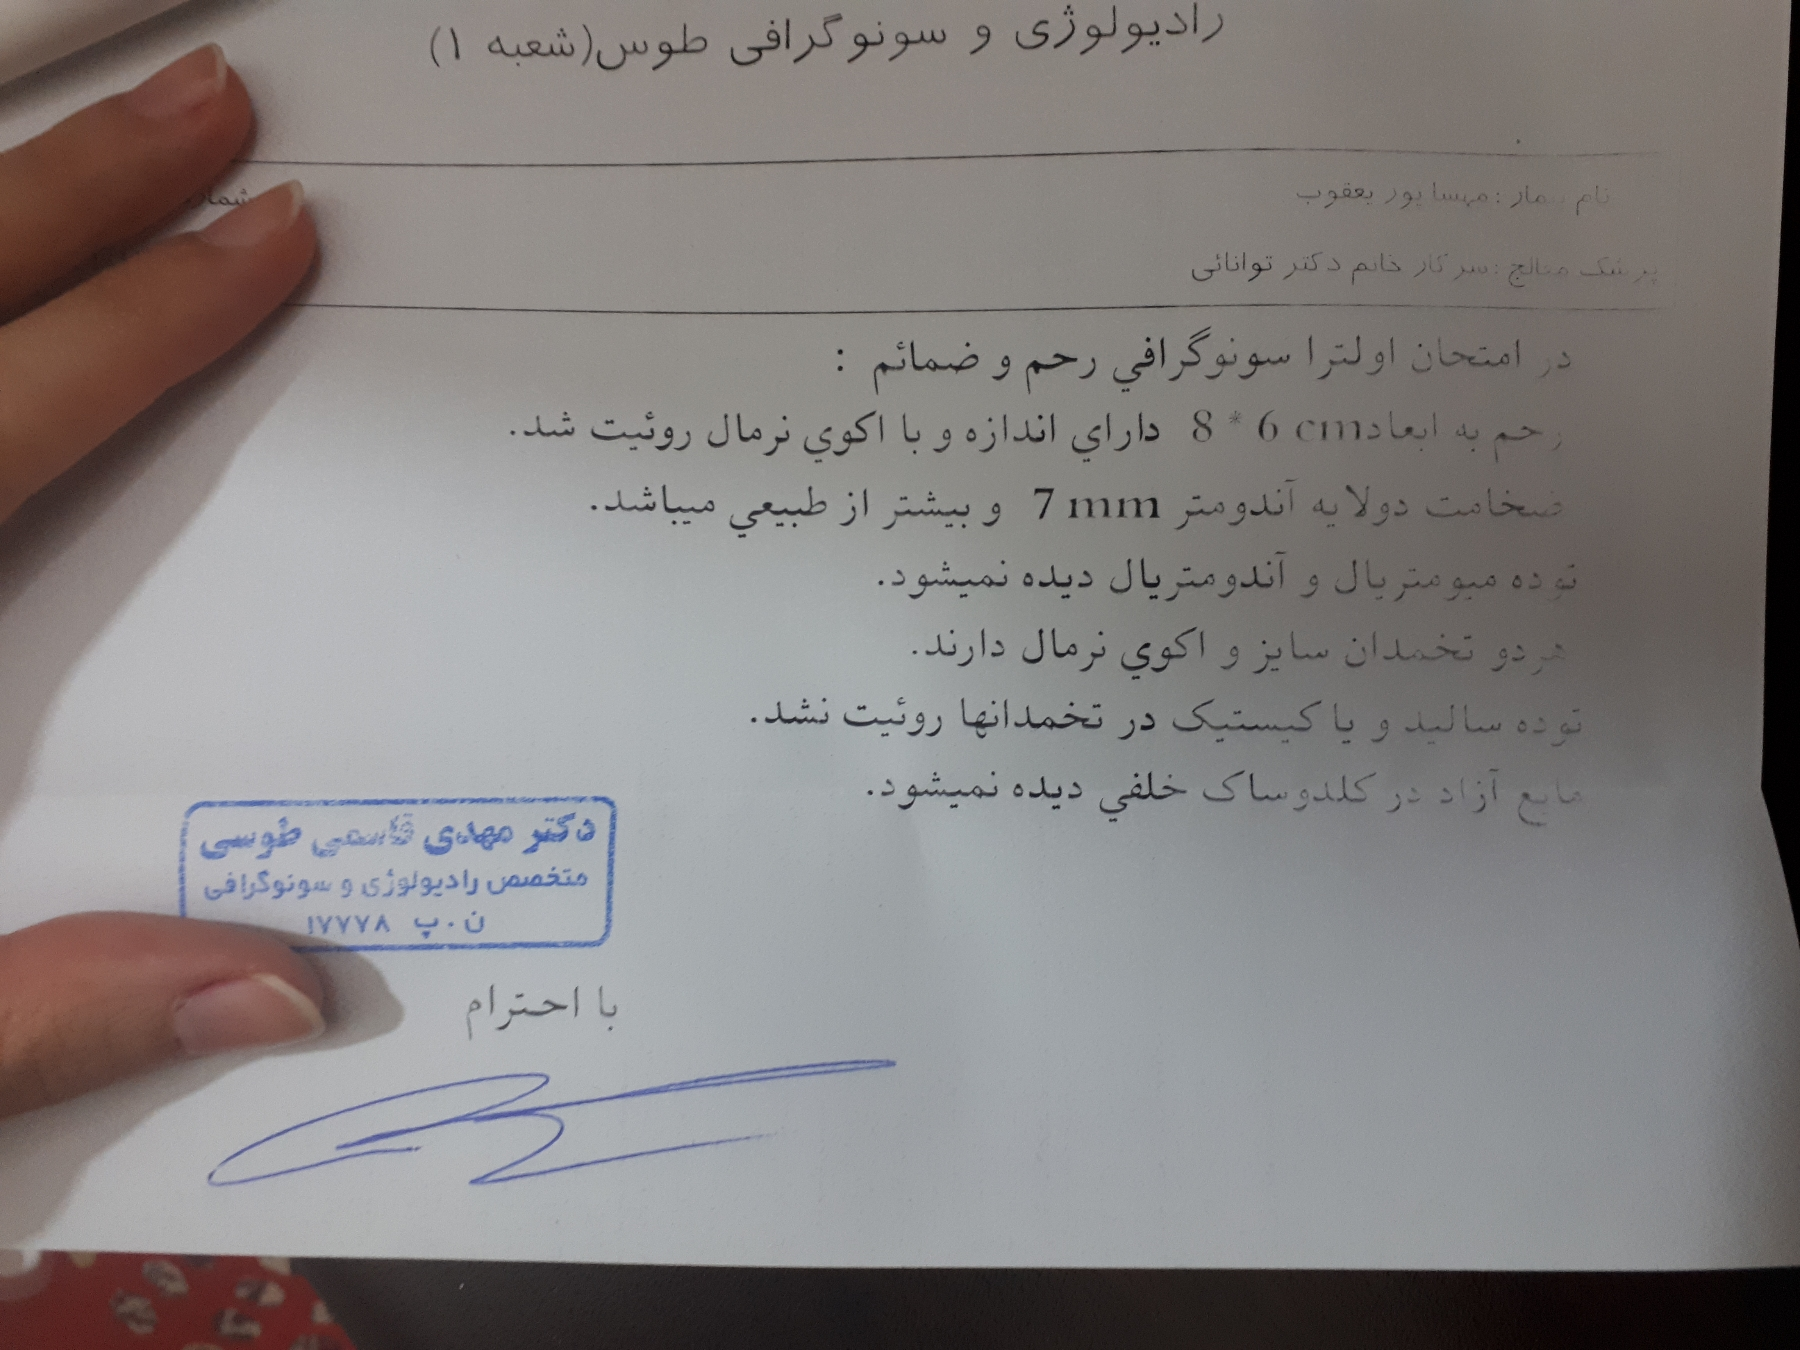 رادیولوژی و سونوگرافی طوس(شعبه ۱)
نام بیمار :مهسا پور یعقوب
شمار
پزشک معالج :سرکار خانم دکتر توانائی
در امتحان اولترا سونوگرافي رحم و ضمائم :
رحم به ابعاد 8 * 6 cm داراي اندازه و با اکوي نرمال روئیت شد.
ضخامت دولایه آندومتر 7 mm و بیشتر از طبیعي میباشد.
توده میومتریال و آندومتریال دیده نمیشود.
هردو تخمدان سایز و اکوي نرمال دارند.
توده سالید و یا کیستیک در تخمدانها روئیت نشد.
مایع آزاد در کلدوساک خلفي دیده نمیشود.
دکتر مهدی قاسمی طوسی
متخصص رادیولوژی و سونوگرافی
ن.پ ۱۷۷۷۸
با احترام